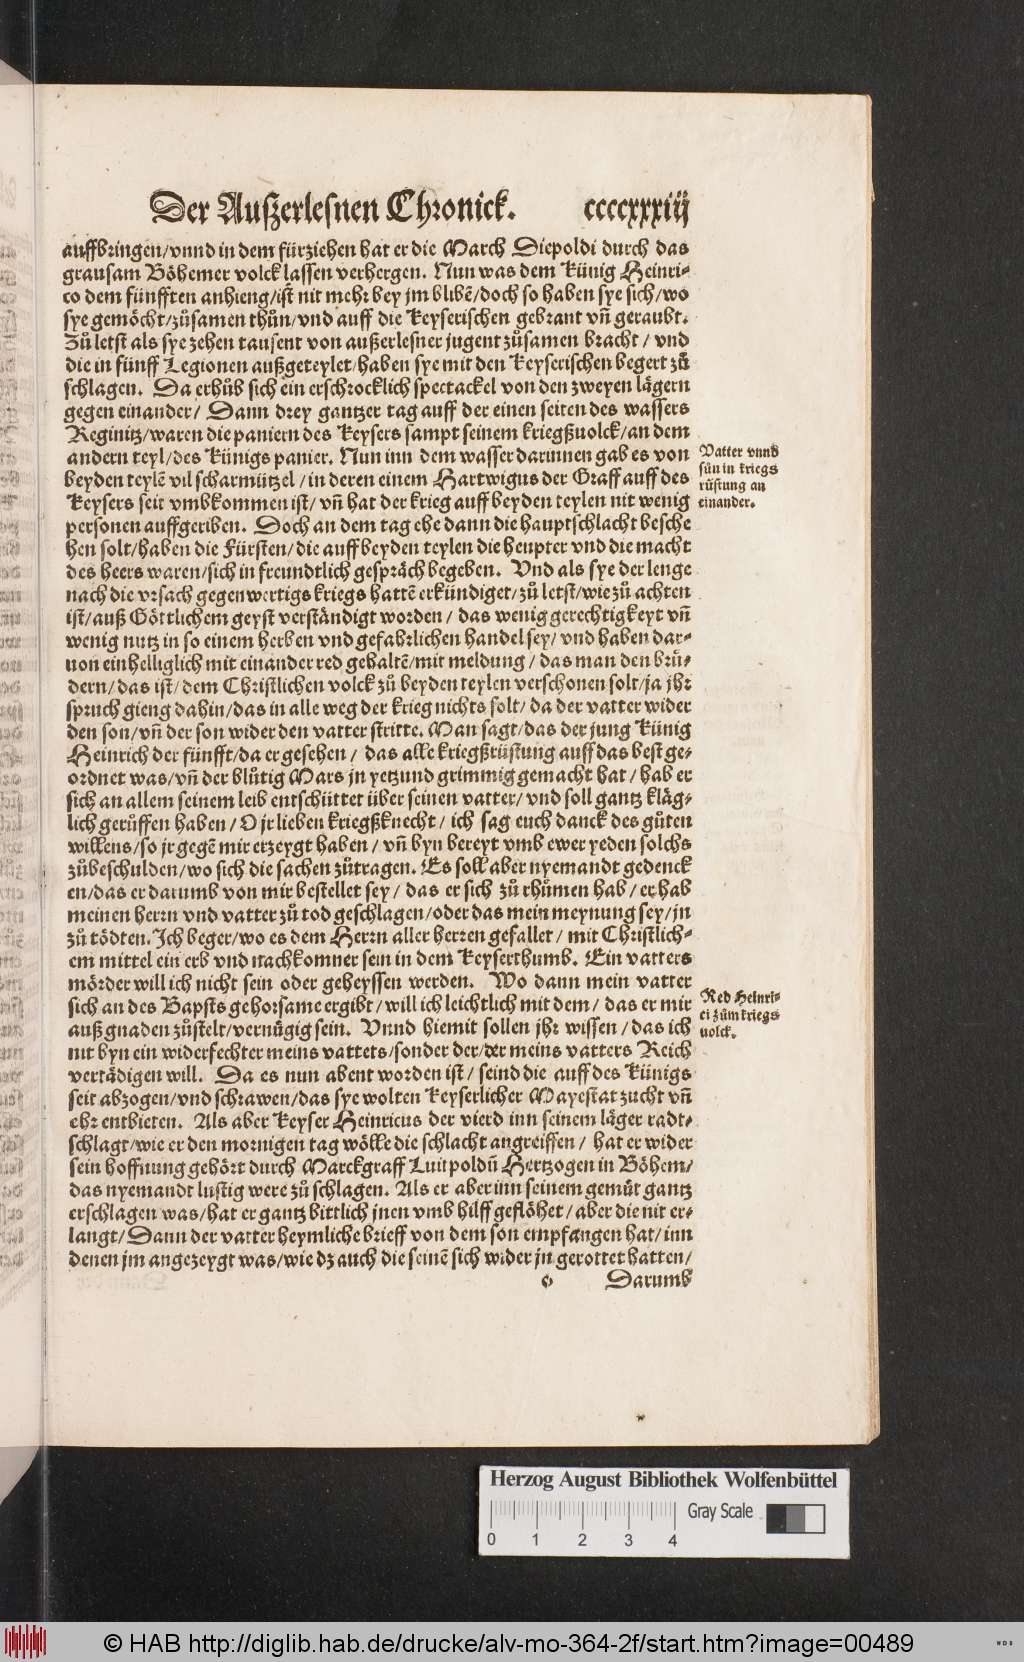 Der Außerlesnen Chronick. ccccxxxiij
auffbringen/vnnd in dem fürziehen hat er die March Diepoldi durch das
grausam Böhemer volck lassen verhergen. Nun was dem Künig Heinri-
co dem fünfften anhieng/ist nit mehr bey jm blibē/doch so haben sye sich/wo
sye gemöcht/zůsamen thůn/vnd auff die Keyserischen gebrant vñ geraubt.
Zů letst als sye zehen tausent von außerlesner jugent zůsamen bracht / vnd
die in fünff Legionen außgeteylet/haben sye mit den Keyserischen begert zů
schlagen. Da erhůb sich ein erschrocklich spectackel von den zweyen lägern
gegen einander/ Dann drey gantzer tag auff der einen seiten des wassers
Reginitz/waren die paniern des Keysers sampt seinem kriegßuolck/an dem
andern teyl/des Künigs panier. Nun inn dem wasser darinnen gab es von
beyden teylē vil scharmützel/in deren einem Hartwigus der Graff auff des
Keysers seit vmbkommen ist/ vñ hat der krieg auff beyden teylen nit wenig
personen auffgeriben. Doch an dem tag ehe dann die hauptschlacht besche
hen solt/haben die Fürsten/die auff beyden teylen die heupter vnd die macht
des heers waren/sich in freundtlich gespräch begeben. Vnd als sye der lenge
nach die vrsach gegenwertigs kriegs hattē erkündiget/zů letst/wie zů achten
ist/auß Göttlichem geyst verständigt worden / das wenig gerechtigkeyt vñ
wenig nutz in so einem herben vnd gefahrlichen handel sey/ vnd haben dar-
uon einhelliglich mit einander red gehaltē/mit meldung / das man den brü-
dern/das ist/dem Christlichen volck zů beyden teylen verschonen solt/ja jhr
spruch gieng dahin/das in alle weg der krieg nichts solt/ da der vatter wider
den son/vñ der son wider den vatter stritte. Man sagt/das der jung Künig
Heinrich der fünfft/da er gesehen / das alle kriegßrüstung auff das best ge-
ordnet was/vñ der blůtig Mars jn yetzund grimmig gemacht hat / hab er
sich an allem seinem leib entschüttet über seinen vatter/ vnd soll gantz kläg-
lich gerůffen haben/O jr lieben kriegßknecht/ ich sag euch danck des gůten
willens/so jr gegē mir erzeygt haben / vñ byn bereyt vmb ewer yeden solchs
zůbeschulden/wo sich die sachen zůtragen. Es soll aber nyemandt gedenck
en/das er darumb von mir bestellet sey / das er sich zů rhůmen hab / er hab
meinen herrn vnd vatter zů tod geschlagen/oder das mein meynung sey/jn
zů tödten. Ich beger/wo es dem Herrn aller herren gefallet / mit Christlich-
em mittel ein erb vnd nachkomner sein in dem Keyserthumb. Ein vatters
mörder will ich nicht sein oder geheyssen werden. Wo dann mein vatter
sich an des Bapsts gehorsame ergibt/will ich leichtlich mit dem / das er mir
auß gnaden zůstelt/vernügig sein. Vnnd hiemit sollen jhr wissen / das ich
nit byn ein widerfechter meins vatters/sonder der/der meins vatters Reich
vertädigen will. Da es nun abent worden ist / seind die auff des Künigs
seit abzogen/vnd schrawen/das sye wolten Keyserlicher Mayestat zucht vñ
ehr entbieten. Als aber Keyser Heinricus der vierd inn seinem läger radt-
schlagt/wie er den mornigen tag wölle die schlacht angreiffen / hat er wider
sein hoffnung gehört durch Marckgraff Luitpoldū Hertzogen in Böhem/
das nyemandt lustig were zů schlagen. Als er aber inn seinem gemůt gantz
erschlagen was/hat er gantz bittlich jnen vmb hilff geflöhet/aber die nit er-
langt/Dann der vatter heymliche brieff von dem son empfangen hat/inn
denen jm angezeygt was/wie dz auch die seinē sich wider jn gerottet hatten/
o Darumb
Vatter vnnd
sün in kriegs
rüstung an
einander.
Red Heinri-
ci zům kriegs
uolck.
Herzog August Bibliothek Wolfenbüttel
Gray Scale
0 1 2 3 4
© HAB http://diglib.hab.de/drucke/alv-mo-364-2f/start.htm?image=00489
HAB